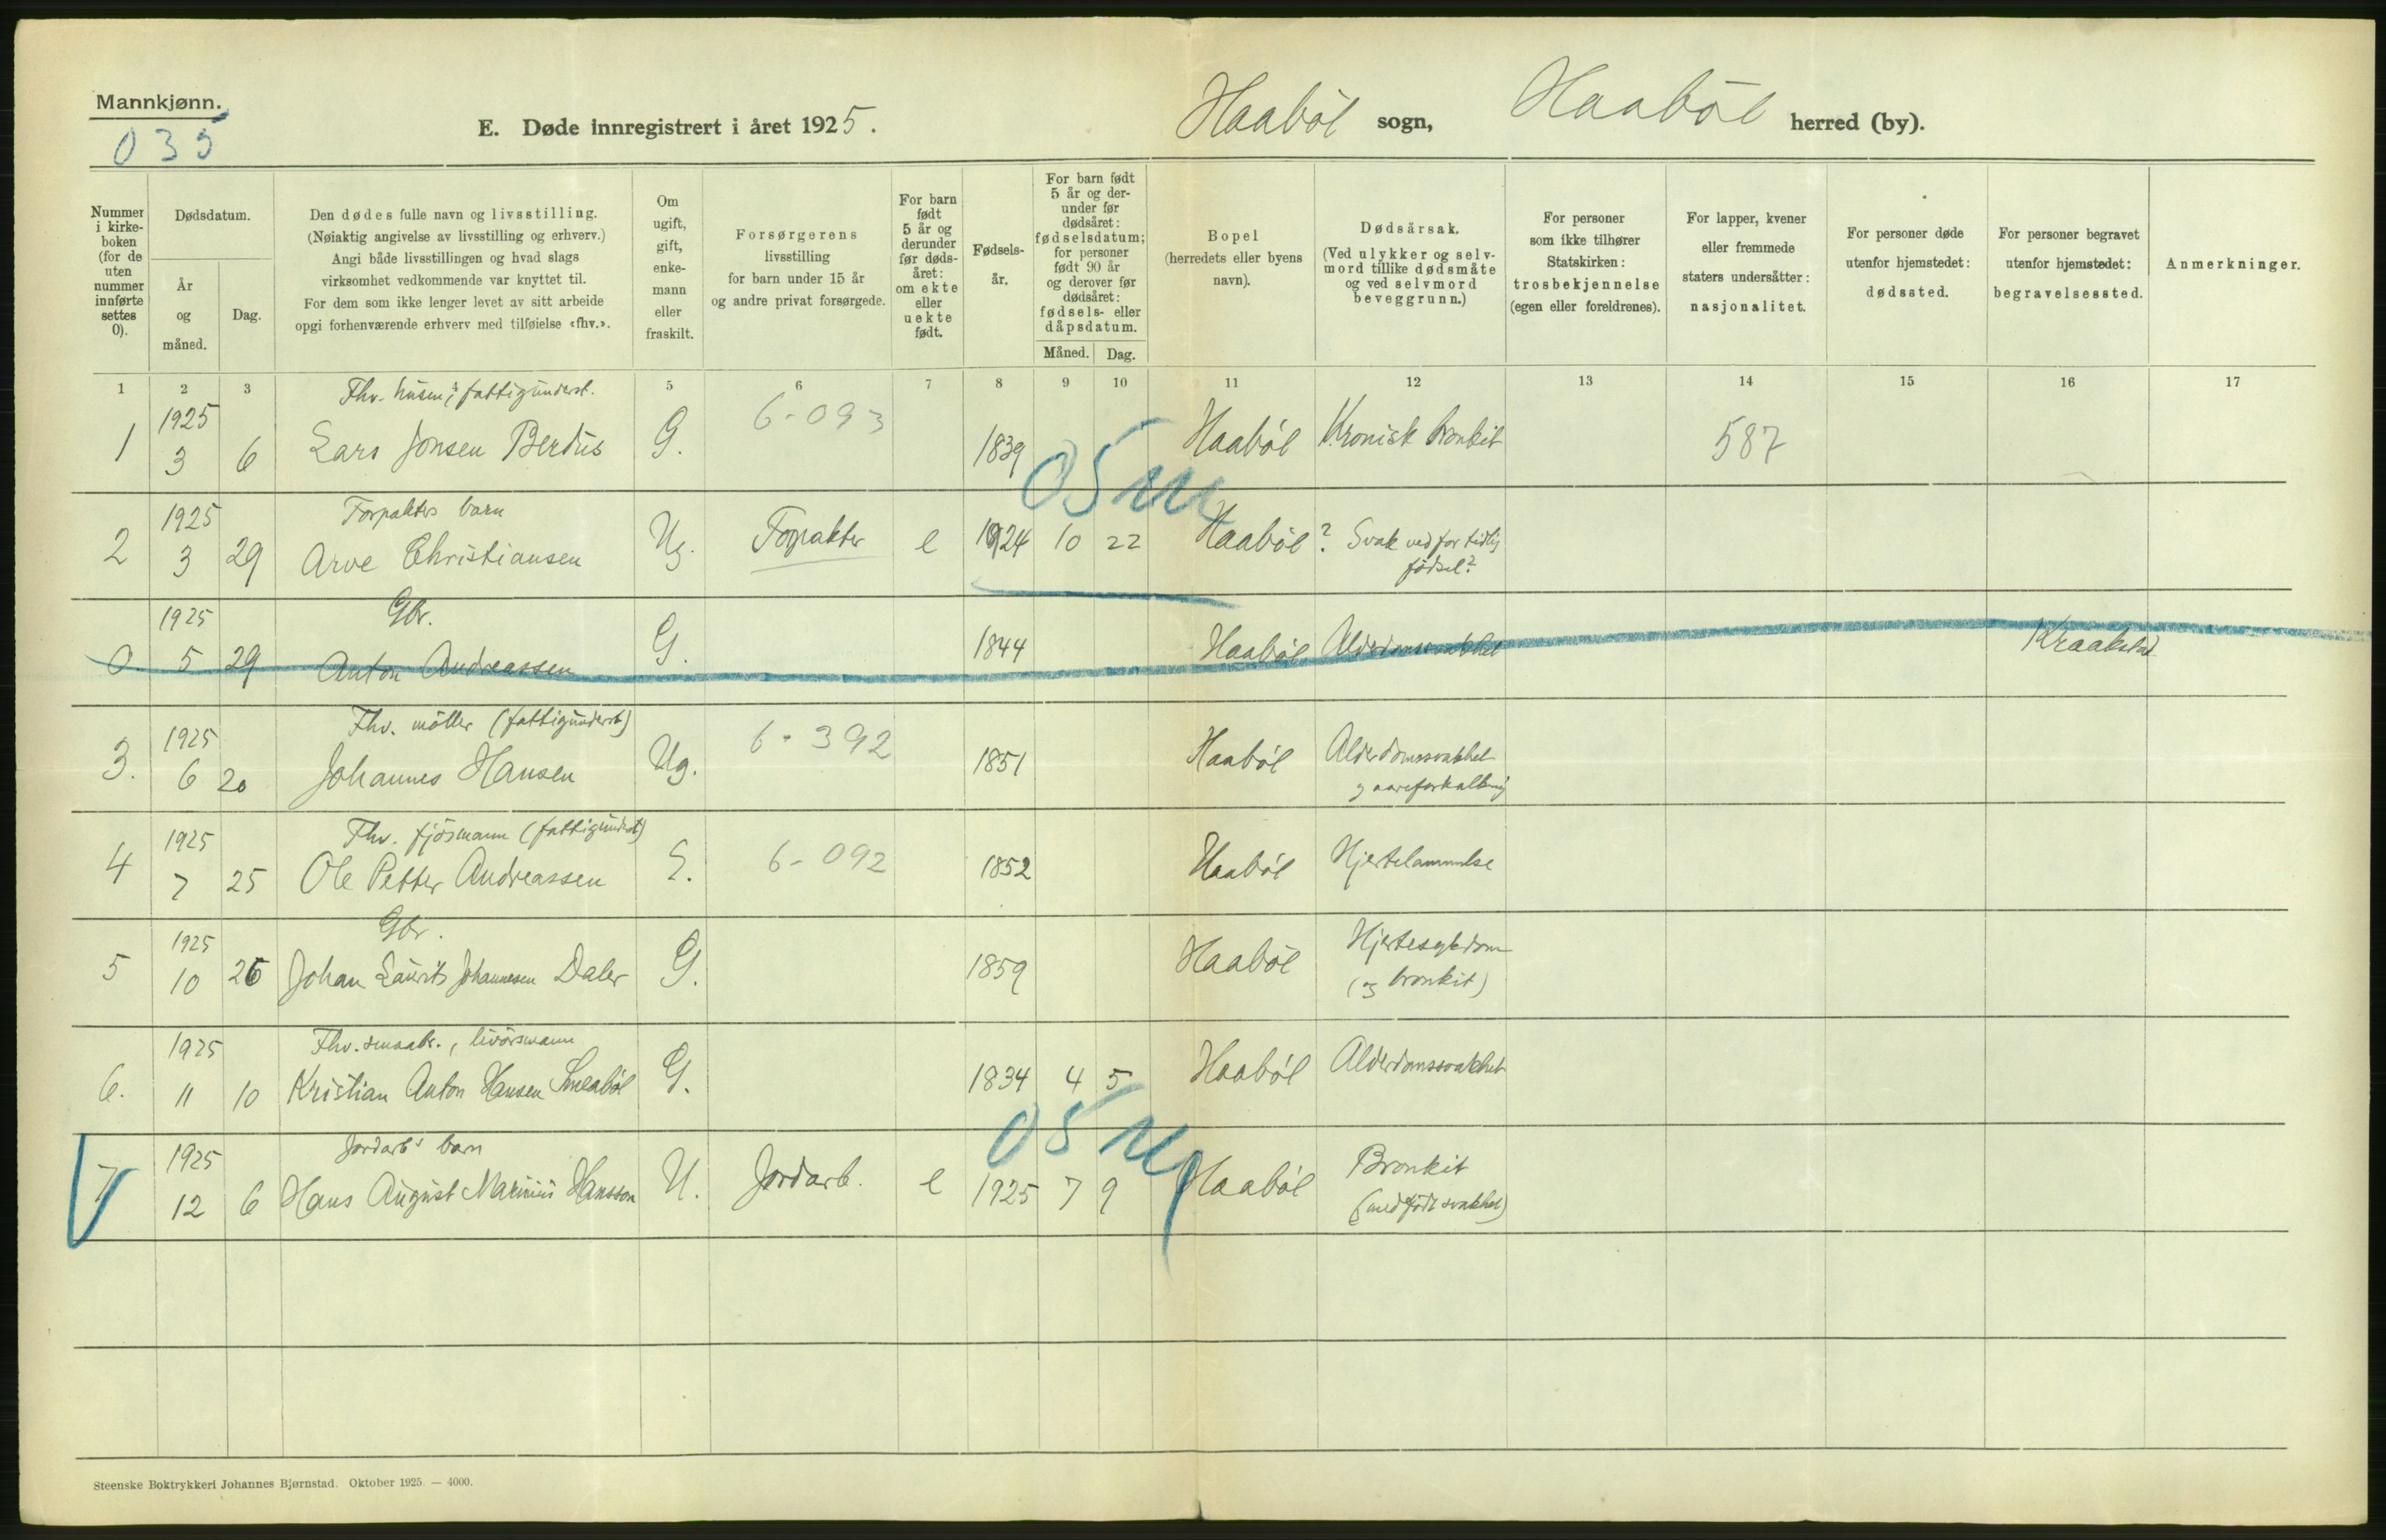 Mannkjønn.
035
E. Døde innregistrert i året 1925.
Haaböl sogn, Haaböl herred (by).
Nummer i kirke-boken (for de uten nummer innførte settes 0).
Dødsdatum.
År og måned.
Dag.
Den dødes fulle navn og livsstilling.
(Nøiaktig angivelse av livsstilling og erhverv.)
Angi både livsstillingen og hvad slags
virksomhet vedkommende var knyttet til.
For dem som ikke lenger levet av sitt arbeide
opgi forhenværende erhverv med tilføielse «fhv.».
Om ugift, gift, enke-mann eller fraskilt.
Forsørgerens
livsstilling
for barn under 15 år
og andre privat forsørgede.
For barn født 5 år og derunder før døds-året: om ekte eller uekte født.
Fødsels-år.
For barn født 5 år og der-under før dødsåret: fødselsdatum; for personer født 90 år og derover før dødsåret: fødsels- eller dåpsdatum.
Måned.
Dag.
Bopel
(herredets eller byens navn).
Dødsårsak.
(Ved ulykker og selv-mord tillike dødsmåte og ved selvmord beveggrunn.)
For personer som ikke tilhører Statskirken: trosbekjennelse (egen eller foreldrenes).
For lapper, kvener eller fremmede staters undersåtter: nasjonalitet.
For personer døde utenfor hjemstedet: dødssted.
For personer begravet utenfor hjemstedet: begravelsessted.
Anmerkninger.
1 2 3 5 6 7 8 9 10 11 12 13 14 15 16 17
Fhv. husm; fattigunderst.
1 1925 3 6 Lars Jonsen Berdus G. 6-093 1839 Haaböl Kronisk bronkit 587
05 m
Forpakters barn
2 1925 3 29 Arve Christiansen Ug. Forpakter e 1924 10 22 Haaböl ? Svak ved for tidlig
födsel?
Gbr.
0 1925 5 29 Anton Andreassen G. 1844 Haaböl Alderdomssvakhet Kraakstad
Fhv. möller (fattigunderst)
3. 1925 6 20 Johannes Hansen Ug. 6-392 1851 Haaböl Alderdomssvakhet
og aareforkalkning
Fhv. fjösmann (fattigunderst)
4 1925 7 25 Ole Petter Andreassen E. 6-092 1852 Haaböl Hjertelammelse
Gbr.
5 1925 10 26 Johan Laurits Johannesen Daler G. 1859 Haaböl Hjertesykdom
(og bronkit)
Fhv. smaabr., livörsmann
6. 1925 11 10 Kristian Anton Hansen Smeaböl G. 1834 4 5 Haaböl Alderdomssvakhet
05 m
Jordarb's barn
7 1925 12 6 Hans August Marinius Hansson U. Jordarb. e 1925 7 9 Haaböl Bronkit
(medfödt svakhet)
Steenske Boktrykkeri Johannes Bjørnstad. Oktober 1925. — 4000.